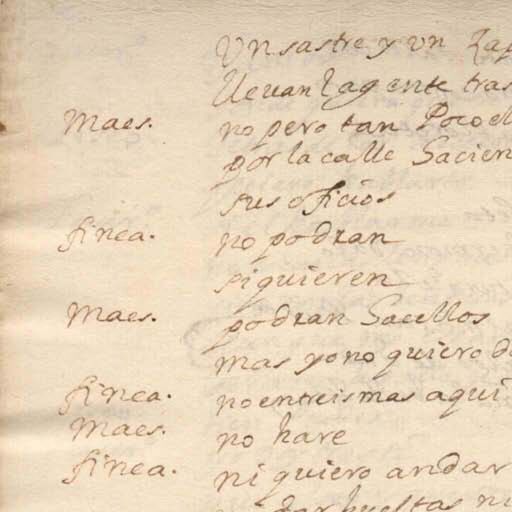 Un sastre y un zap
lleuan la gente tras
Maes. no pero tan Poco el
por la calle Sacien
sus oficios
finea. no podran
si quieren
Maes. podran Sacellos
mas yo no quiero da
finea. no entreis mas aqui
Maes. no hare
finea. ni quiero andar